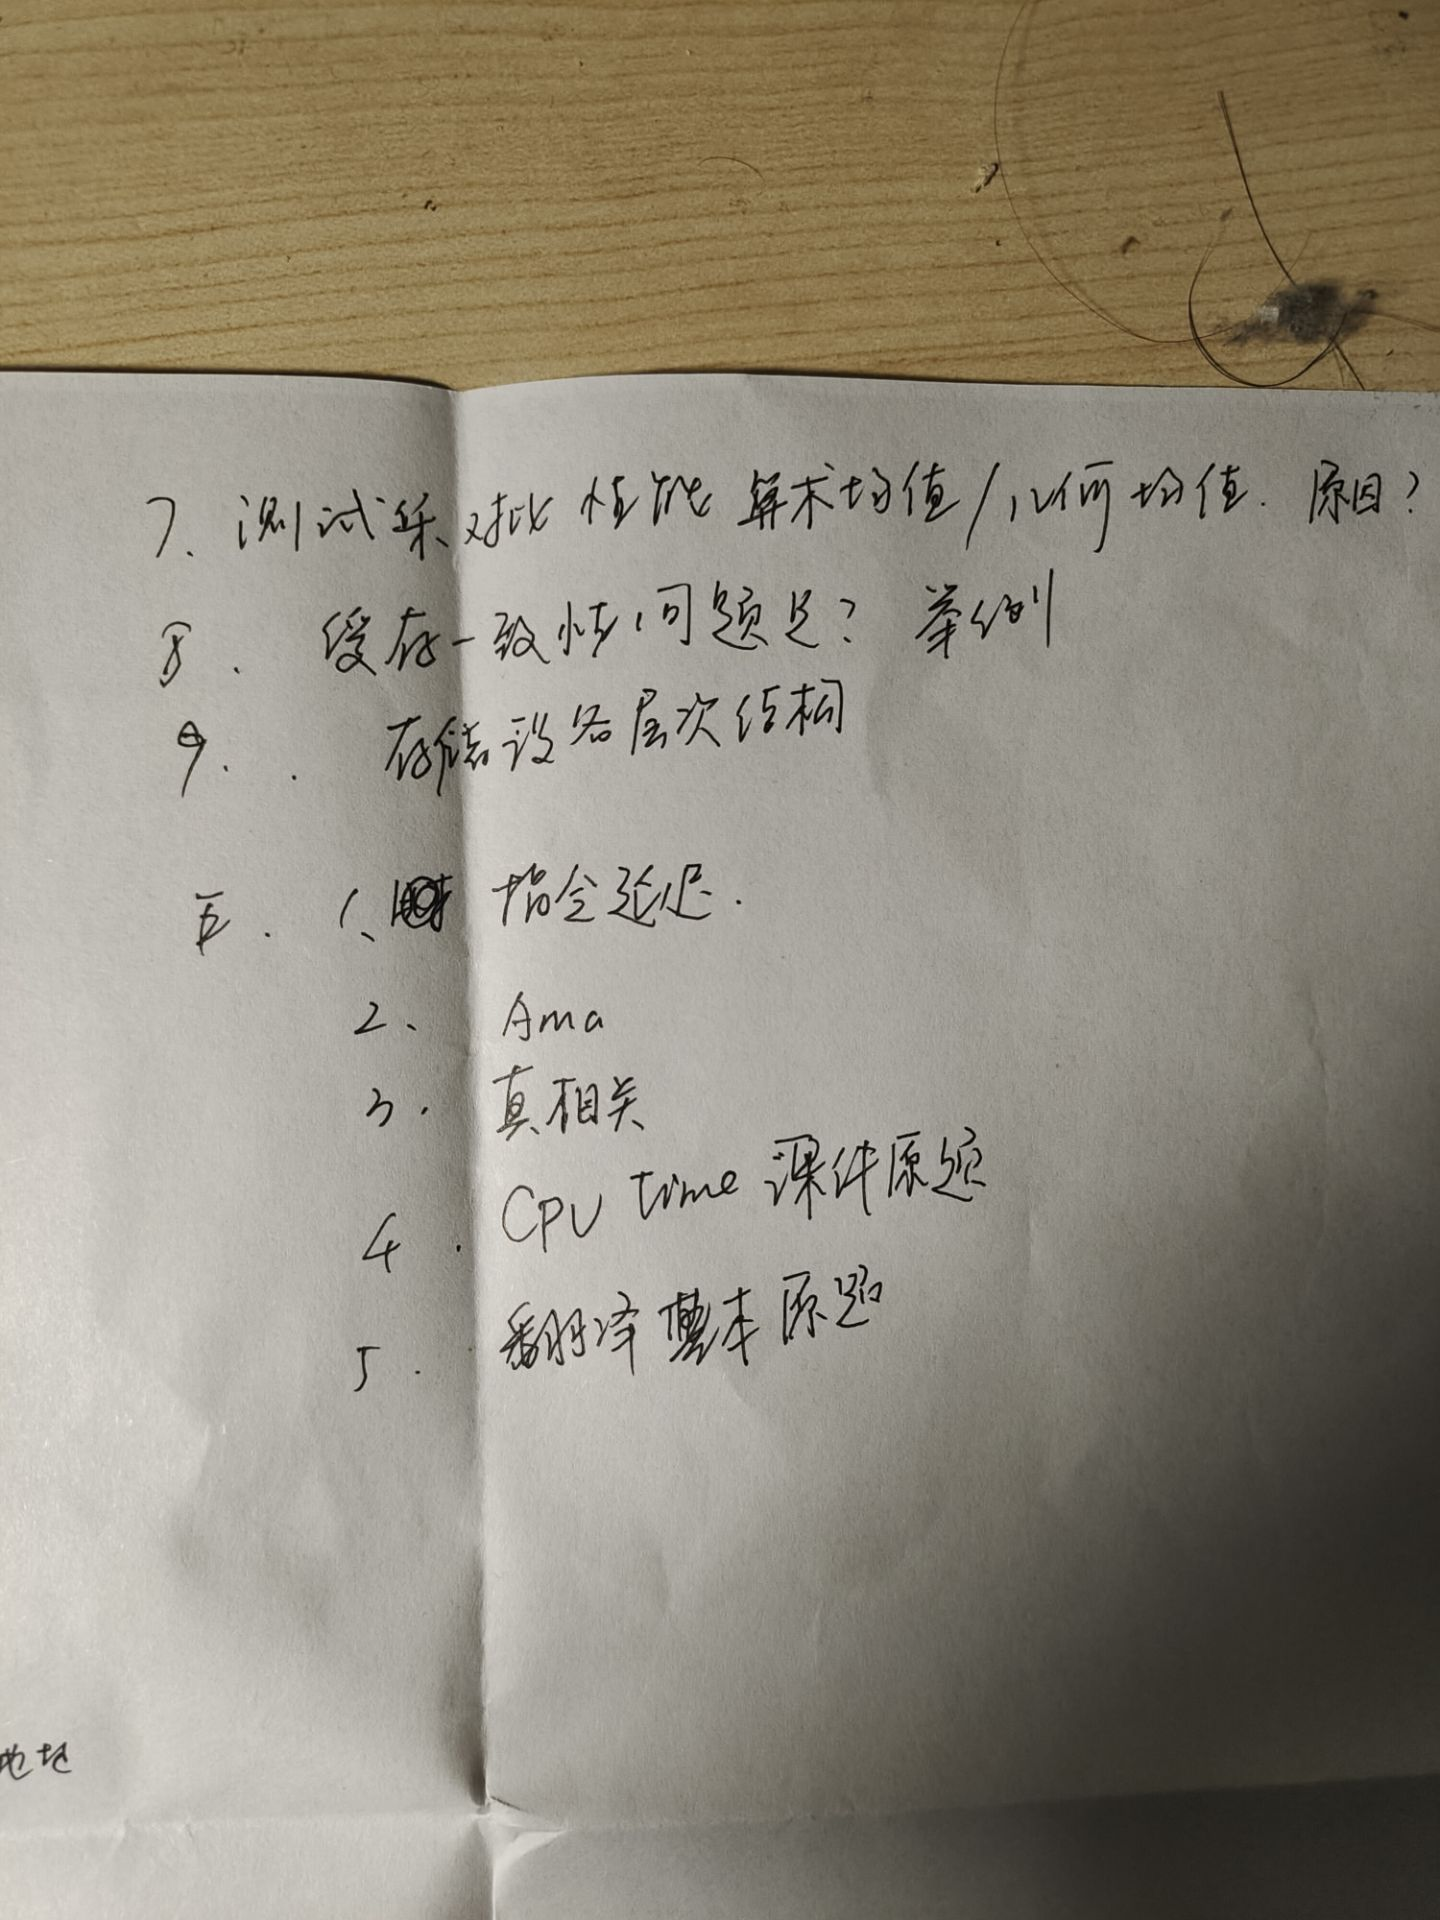 7. 测试集对比性能 算术均值/几何均值. 原因?
8. 缓存一致性问题是? 举例
9. 存储设备层次结构
五. 1、 指令延迟.
2、 Ama
3. 真相关
4. CPU time 课件原题
5. 翻译 基本原题
地址